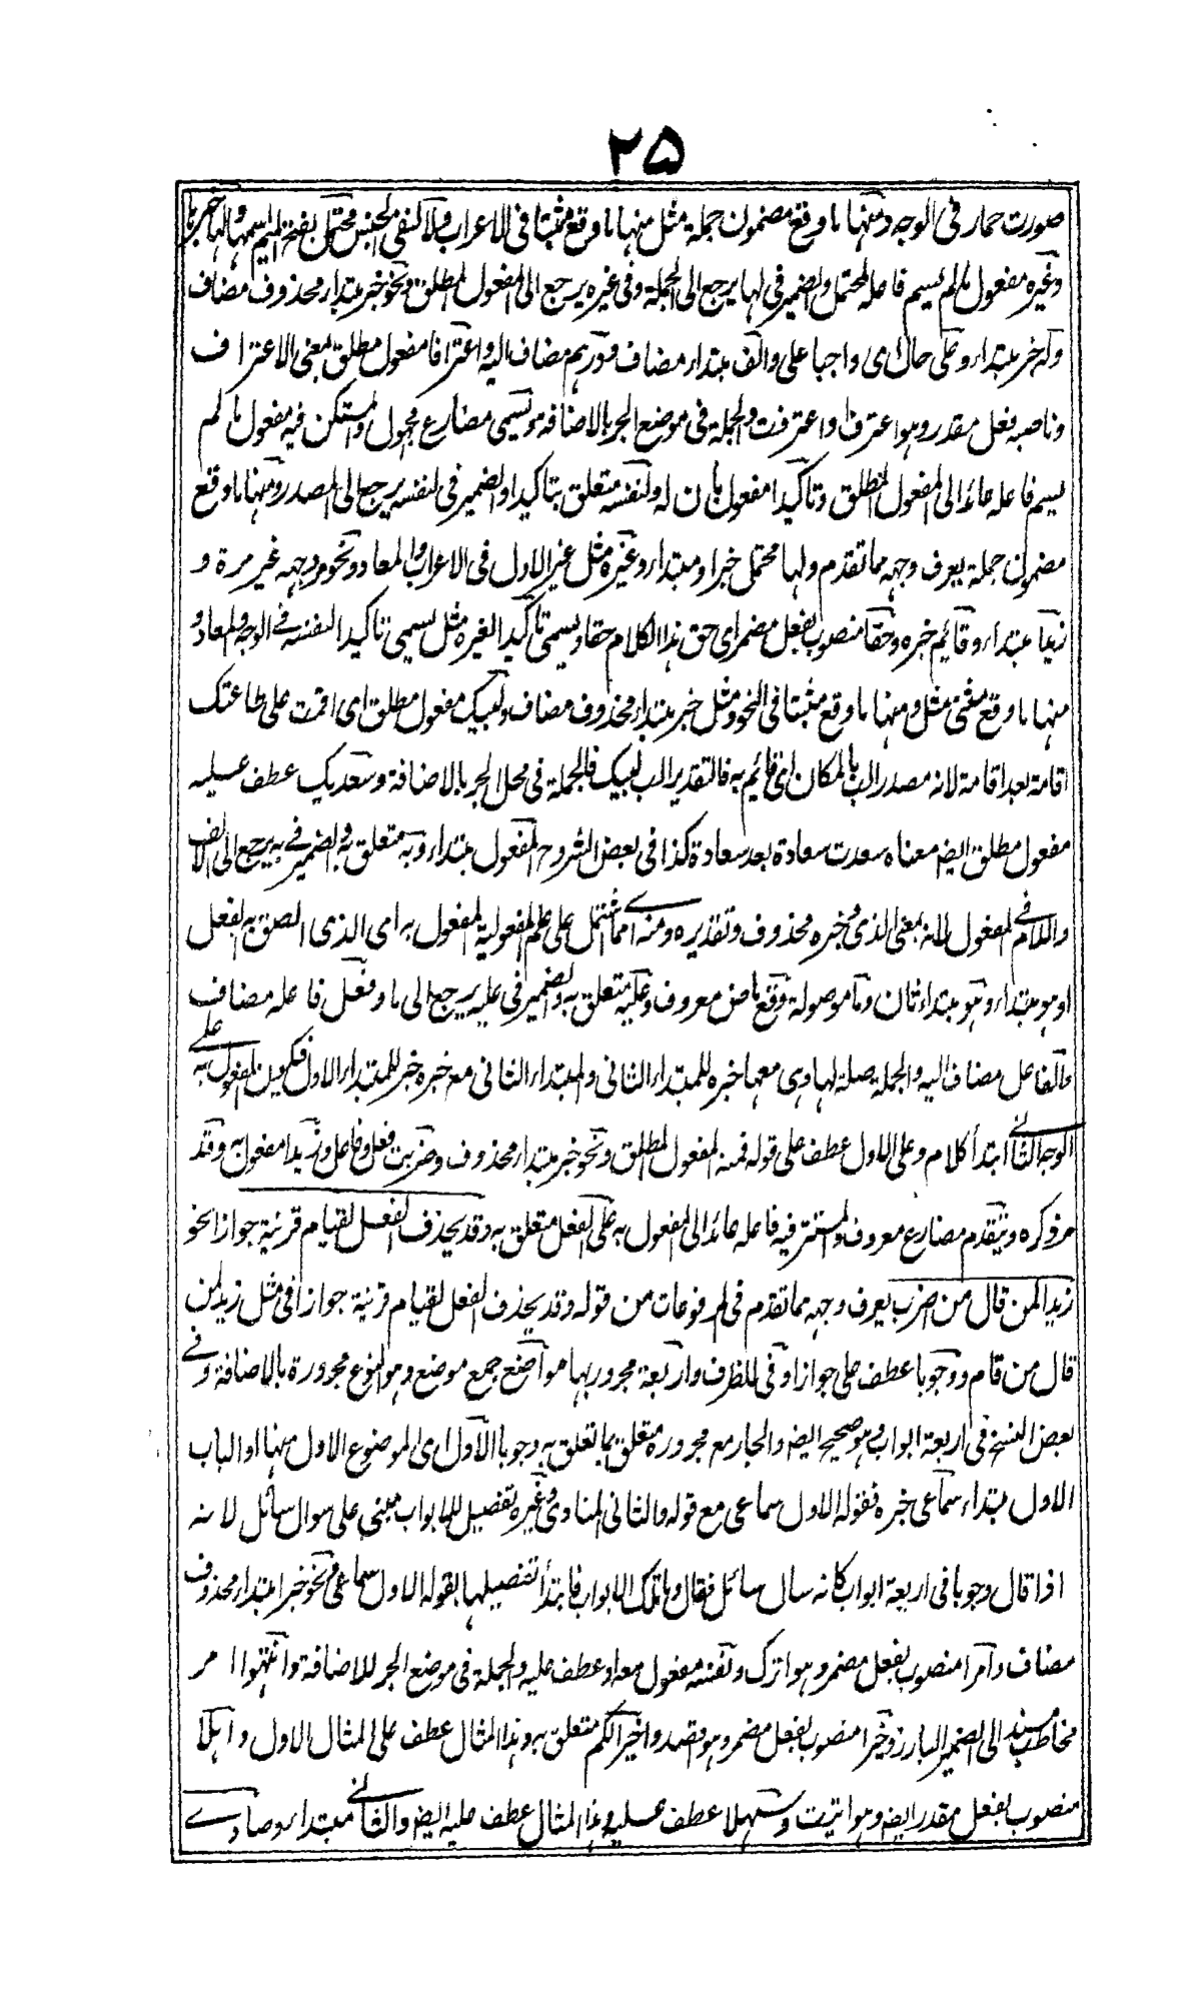 ۲۵
صورت حمار فى الوجه ومنها ما وقع مضمون جملة مثل منها ما وقع مثبتا فى الاعراب ولا لنفى الجنس محتمل بفتح الميم اسمها ولها خبرها
وغيره مفعول مالم يسم فاعله لمحتمل والضمير فى لها يرجع الى الجملة وفى غيره يرجع الى المفعول المطلق ونحو خبر مبتداء محذوف مضاف
وله خبر مبتداء وعلى حال اى واجبا على والف مبتداء مضاف ودرهم مضاف اليه واعترافا مفعول مطلق بمعنى الاعتراف
وناصبه فعل مقدر وهو اعترف او اعترفت والجملة فى موضع الجر بالاضافه ويسمى مضارع مجهول والمستكن فيه مفعول مالم
يسم فاعله عائد الى المفعول المطلق وتاكيدا مفعول ثان له ولنفسه متعلق بتاكيدا والضمير فى لنفسه يرجع الى المصدر ومنها ما وقع
مضمون جملة يعرف وجهه مما تقدم ولها محتمل خبر او مبتداء وغيره مثل غير الاول فى الاعراب والمعاد ونحو وجهه غير مرة و
زيد مبتداء وقائم خبره وحقا منصوب بفعل مضمر اى حق هذا الكلام حقا ويسمى تاكيدا لغيره مثل يسمى تاكيدا لنفسه فى الوجه والمعاد و
منها ما وقع مثنى مثل ومنها ما وقع مثبتا فى النحو ومثل خبر مبتداء محذوف مضاف ولبيك مفعول مطلق اى اقمت على طاعتك
اقامة بعد اقامة لانه مصدر الب بالمكان اى قايم به فالتقدير الب لبيك فالجملة فى محل الجر بالاضافة وسعديك عطف عليه
مفعول مطلق ايضا معناه سعدت سعادة بعد سعادة كذا فى بعض الشروح المفعول مبتداء وبه متعلق به والضمير فى به يرجع الى الالف
واللام فى المفعول لانه بمعنى الذى وخبره محذوف وتقديره ومنه اى مما اشتمل على علم المفعولية المفعول به اى الذى الصق به الفعل
او هو مبتداء وهو مبتداء ثان وما موصولة ووقع ماض معروف وعليه متعلق به والضمير فى عليه يرجع الى ما وفعل فاعله مضاف
والفاعل مضاف اليه والجملة صلة لها وهى معها خبره للمبتداء الثانى والمبتداء الثانى مع خبره خبر للمبتداء الاول فيكون المفعول به على
الوجه الثانى ابتدأ كلام وعلى الاول عطف على قوله فمنه المفعول المطلق ونحو خبر مبتداء محذوف وضربت فعل وفاعل وزيدا مفعول به وقد
مر ذكره ويتقدم مضارع معروف والمستتر فيه فاعله عائد الى المفعول به على الفعل متعلق به وقد يحذف الفعل لقيام قرينة جوازا نحو
زيدا لمن قال من اضرب يعرف وجهه مما تقدم فى المرفوعات من قوله وقد يحذف الفعل لقيام قرينة جوازا فى مثل زيد لمن
قال من قام ووجوبا عطف على جوازا وفى للظرف واربعة مجرور بها مواضع جمع موضع وهو ممنوع مجرورة بالاضافة وفى
بعض النسخ فى اربعة ابواب وهو صحيح ايضا والجار مع مجروره متعلق بما تعلق به وجوبا الاول اى الموضوع الاول منها او الباب
الاول مبتداء سماعى خبره فقوله الاول سماعى مع قوله والثانى المنادى وغيره تفصيل للابواب مبنى على سوال سائل لانه
اذا قال وجوبا فى اربعة ابواب كانه سال سائل فقال وما تلك الابواب فابتدأ تفصيلها بقوله الاول سماعى ونحو خبر ابتداء محذوف
مضاف وامرأ منصوب بفعل مضمر وهو اترك ونفسه مفعول معه او عطف عليه والجملة فى موضع الجر للاضافة وانتهوا امر
مخاطب مسند الى الضمير البارز وخيرا منصوب بفعل مضمر وهو اقصدوا خيرا لكم متعلق به وهذا المثال عطف على المثال الاول واهلا
منصوب بفعل مقدر ايضا وهو اتيت وسهلا عطف عليه وهذا المثال عطف عليه ايضا والثانى مبتداء وصاوى